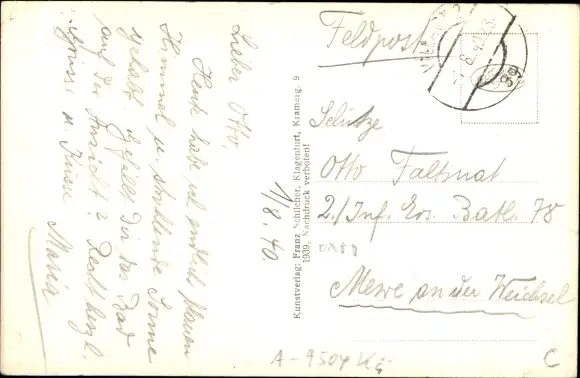 Lieber Otto,
Heute habe ich endlich blauen
Himmel u. strahlende Sonne
gehabt. Gefällt Dir das Bad
auf der Ansicht? Recht herzl.
Grüsse u. Küsse Maria
1/8.40.
Kunstverlag: Franz Schilcher, Klagenfurt, Kramerg. 9
1939. Nachdruck verboten!
Feldpost
Schütze
Otto Faltnat
2./Inf. Ers. Batl. 78
Mewe an der Weichsel
A-9504
C